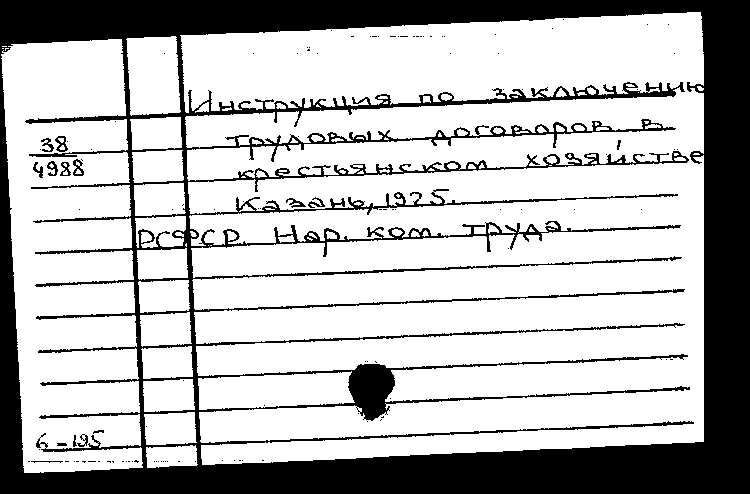 Инструкция по заключению
38
трудовых договоров в
4988
крестьянском хозяйстве
Казань, 1925.
РСФСР. Нар. ком. труда.
6-195